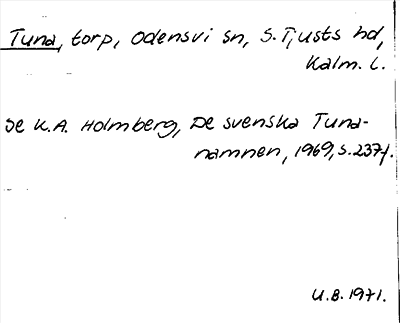 Tuna, torp, Odensvi sn, S. Tjusts hd,
Kalm. L.
Se K.A. Holmberg, De svenska Tuna-
namnen, 1969, s. 237f.
U.B. 1971.